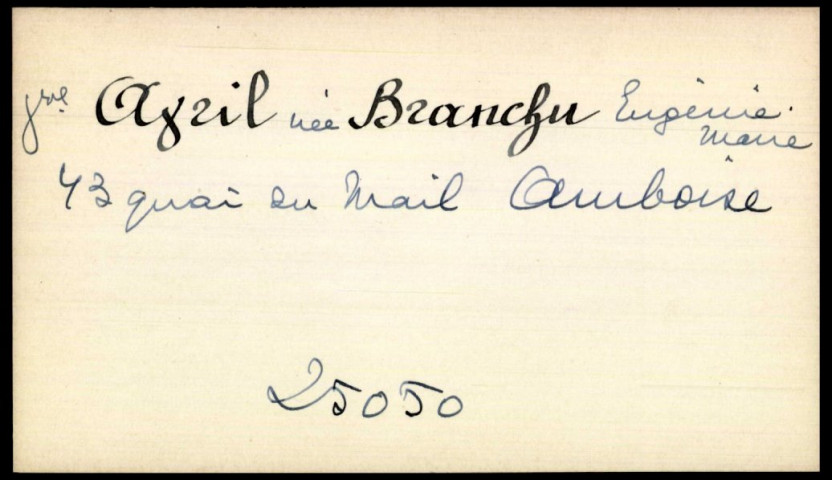 Avril née Branchu Eugénie
Marie
43 quai du Mail Amboise
25050